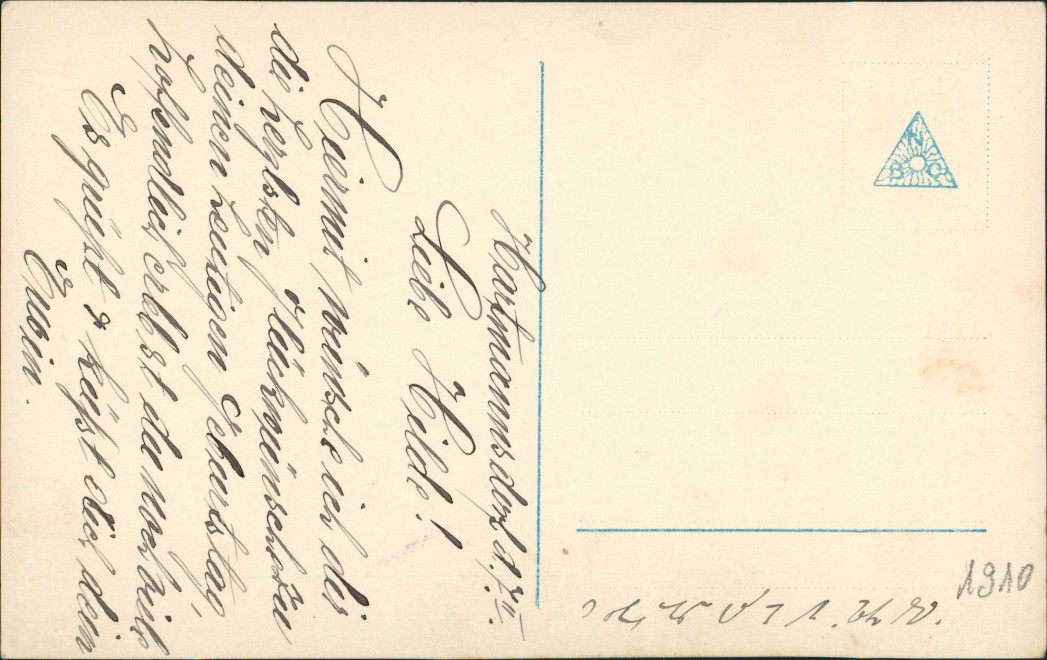 Hartmannsdorf d.
Liebe Hilde!
Hiermit wünsche ich dir
die herzlsten Glückwünsche zu
deinen heutigen Geburtstag,
hoffendlich erlebst du noch viele
Es grüßt & küßt dich dein
Erwin.
N
B C
1910